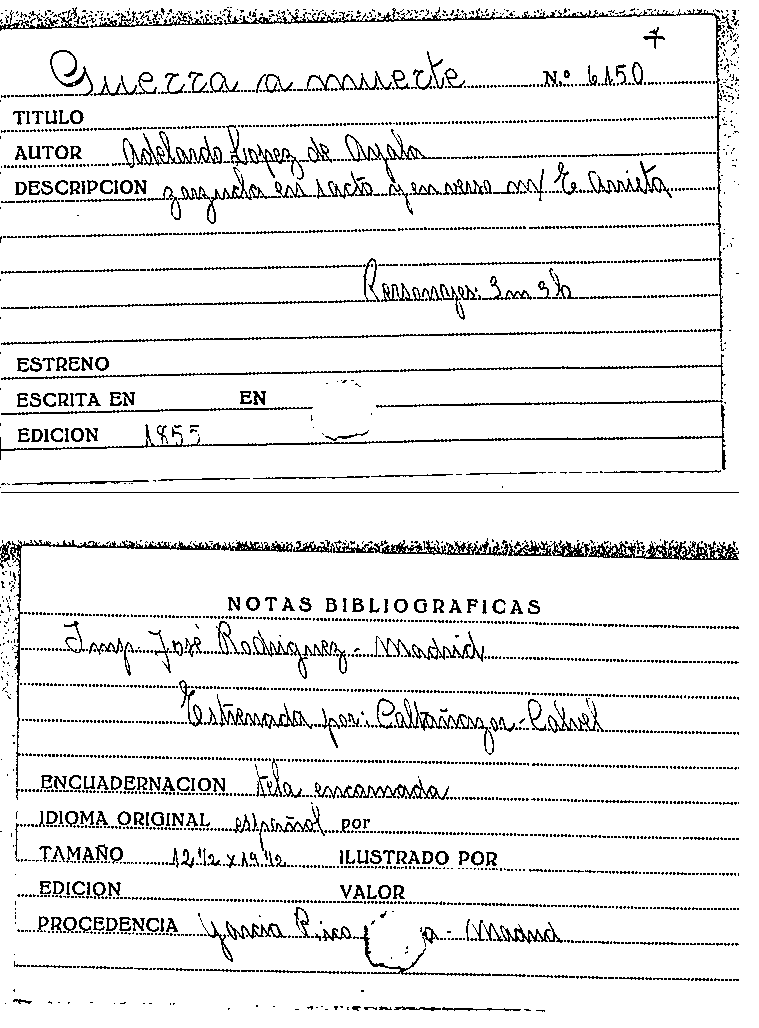 7
Guerra a muerte Nº 6150
TITULO
AUTOR Adelardo Lopez de Ayala
DESCRIPCION zarzuela en 1 acto y en verso m/ E. Arrieta
Personajes: 3m 3h
ESTRENO
ESCRITA EN EN
EDICION 1855
NOTAS BIBLIOGRAFICAS
Imp. José Rodriguez - Madrid
Estrenada por: Caltañazor - Calvet
ENCUADERNACION tela encarnada
IDIOMA ORIGINAL español por
TAMAÑO 12 1/2 x 19 1/2 ILUSTRADO POR
EDICION VALOR
PROCEDENCIA Garcia Rico a - Madrid